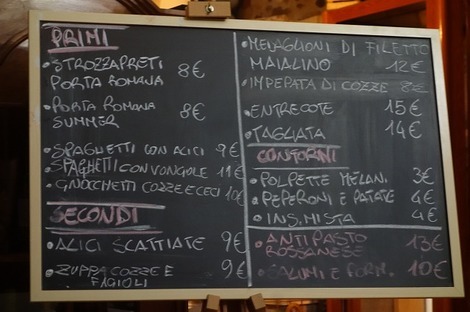 PRIMI
• STROZZAPRETI
PORTA ROMANA 8€
• PORTA ROMANA
SUMMER 8€
• SPAGHETTI CON ALICI 9€
• SPAGHETTI CON VONGOLE 11€
• GNOCCHETTI COZZE E CECI 10€
SECONDI
• ALICI SCATTIATE 9€
• ZUPPA COZZE E
FAGIOLI 9€
• MEDAGLIONI DI FILETTO
MAIALINO 12€
• IMPEPATA DI COZZE 8€
• ENTRECOTE 15€
• TAGLIATA 14€
CONTORNI
• POLPETTE MELAN. 3€
• PEPERONI E PATATE 4€
• INS. MISTA 4€
• ANTIPASTO
ROSSANESE 13€
• SALUMI E FORM. 10€